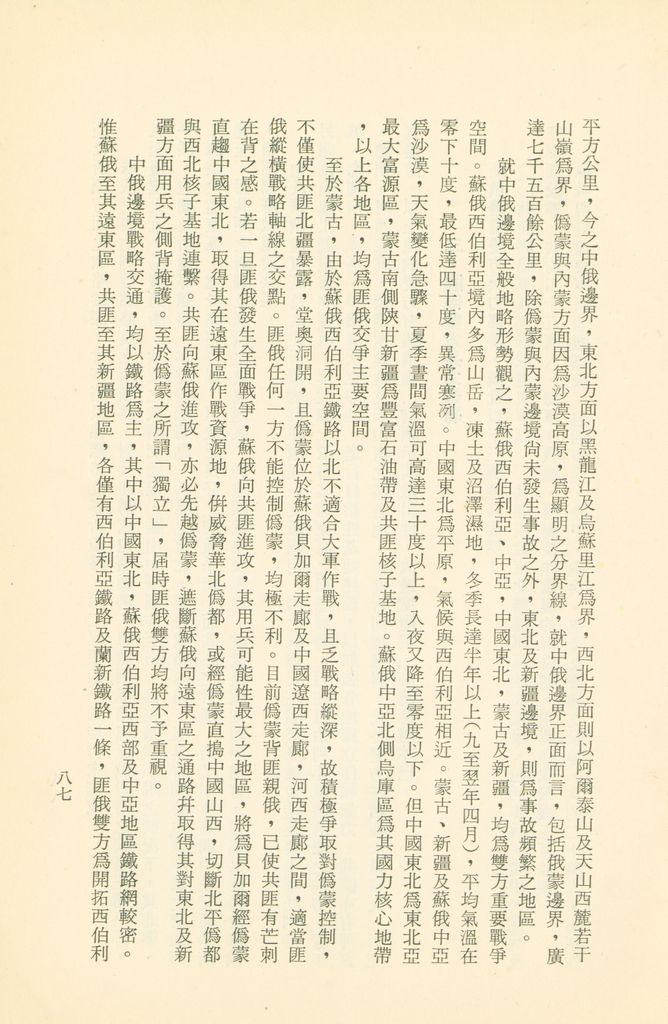 平方公里，今之中俄邊界，東北方面以黑龍江及烏蘇里江爲界，西北方面則以阿爾泰山及天山西麓若干
山嶺爲界，僞蒙與內蒙方面因爲沙漠高原，爲顯明之分界線，就中俄邊界正面而言，包括俄蒙邊界，廣
達七千五百餘公里，除僞蒙與內蒙邊境尙未發生事故之外，東北及新疆邊境，則爲事故頻繁之地區。
就中俄邊境全般地略形勢觀之，蘇俄西伯利亞、中亞，中國東北，蒙古及新疆，均爲雙方重要戰爭
空間。蘇俄西伯利亞境內多爲山岳，凍土及沼澤濕地，冬季長達半年以上（九至翌年四月），平均氣溫在
零下十度，最低達四十度，異常寒冽。中國東北爲平原，氣候與西伯利亞相近。蒙古、新疆及蘇俄中亞
爲沙漠，天氣變化急驟，夏季晝間氣溫可高達三十度以上，入夜又降至零度以下。但中國東北爲東北亞
最大富源區，蒙古南側陝甘新疆爲豐富石油帶及共匪核子基地。蘇俄中亞北側烏庫區爲其國力核心地帶
，以上各地區，均爲匪俄交爭主要空間。
至於蒙古，由於蘇俄西伯利亞鐵路以北不適合大軍作戰，且乏戰略縱深，故積極爭取對僞蒙控制，
不僅使共匪北疆暴露，堂奧洞開，且僞蒙位於蘇俄貝加爾走廊及中國遼西走廊，河西走廊之間，適當匪
俄縱橫戰略軸線之交點。匪俄任何一方不能控制僞蒙，均極不利。目前僞蒙背匪親俄，已使共匪有芒刺
在背之感。若一旦匪俄發生全面戰爭，蘇俄向共匪進攻，其用兵可能性最大之地區，將爲貝加爾經僞蒙
直趨中國東北，取得其在遠東區作戰資源地，倂威脅華北僞都，或經僞蒙直搗中國山西，切斷北平僞都
與西北核子基地連繫。共匪向蘇俄進攻，亦必先越僞蒙，遮斷蘇俄向遠東區之通路幷取得其對東北及新
疆方面用兵之側背掩護。至於僞蒙之所謂「獨立」，屆時匪俄雙方均將不予重視。
中俄邊境戰略交通，均以鐵路爲主，其中以中國東北，蘇俄西伯利亞西部及中亞地區鐵路網較密。
惟蘇俄至其遠東區，共匪至其新疆地區，各僅有西伯利亞鐵路及蘭新鐵路一條，匪俄雙方爲開拓西伯利
八七